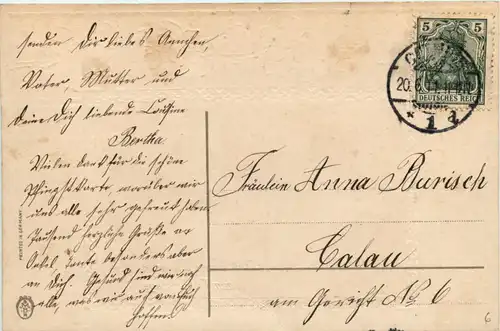 senden Dir liebes Annchen,
Vater, Mutter und
Deine Dich liebende Cousine
Bertha
Vielen Dank für die schöne
Pfingstkarte, worüber wir
uns alle sehr gefreut haben
Tausend herzliche Grüße an
Onkel, Tante besonders aber
an Dich. Gesund sind wir noch
alle, was wir auch von Euch
hoffen.
Fräulein Anna Burisch
Calau
am Gericht No 6
5 5
DEUTSCHES REICH
20.6
* 1 d
PRINTED IN GERMANY
6